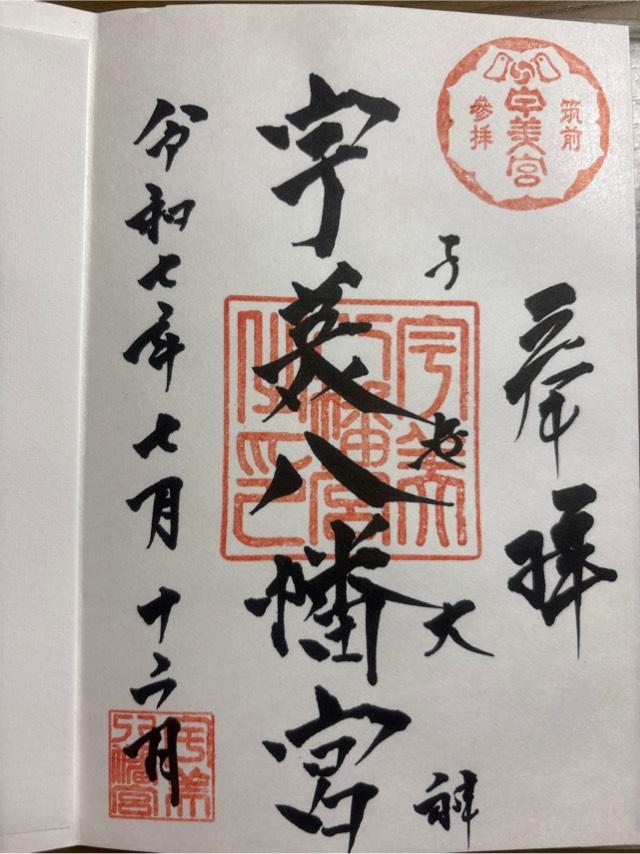 筑前
宇美宮
參拝
奉拝
子安大神
宇美八幡宮
宇美
八幡宮
令和七年七月十二日
宇美
八幡宮